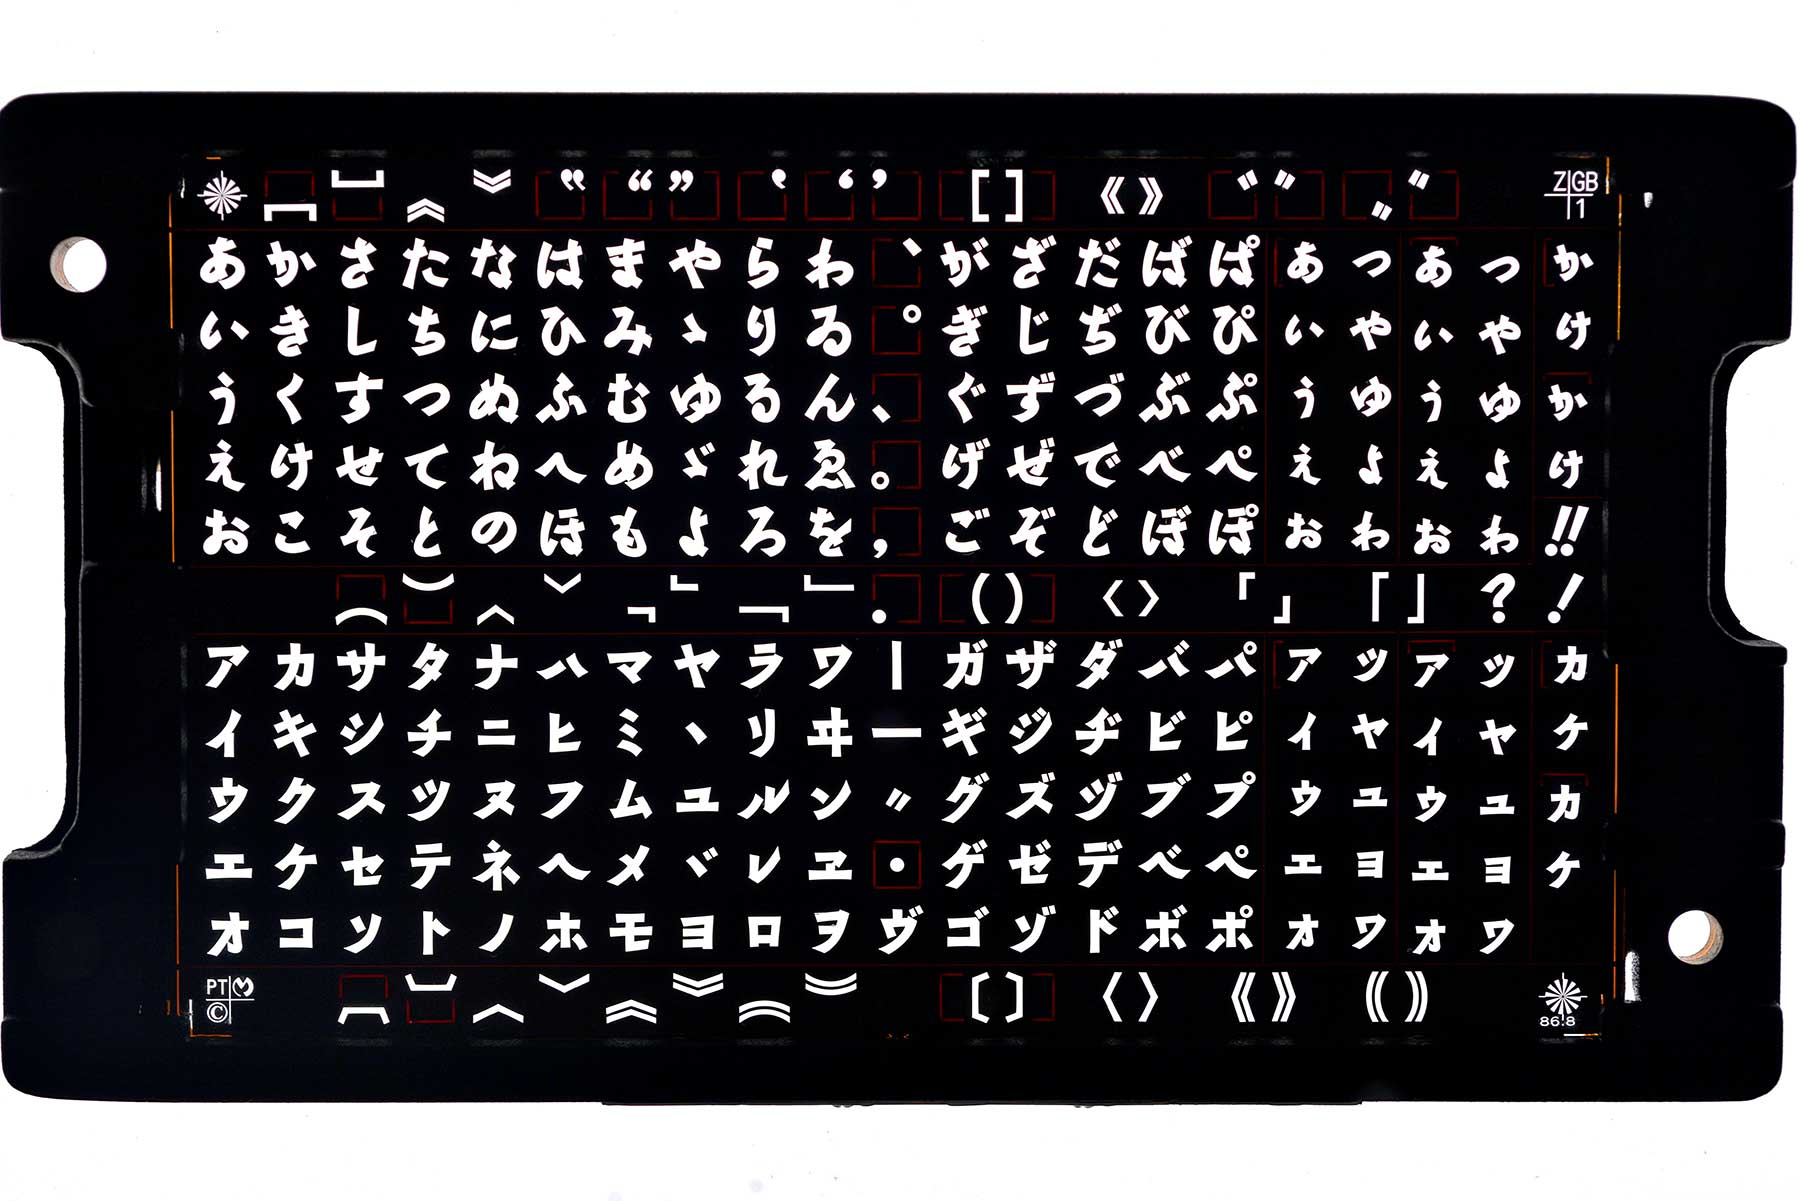 ﹇ ︽ ︾ “ “ ” ‘ ‘ ’ [ ] 《 》 〝 〟 ZGB 1
あ か さ た な は ま や ら わ 、 が ざ だ ば ぱ ぁ っ ぁ っ ゕ
い き し ち に ひ み ゝ り ゐ 。 ぎ じ ぢ び ぴ ぃ ゃ ぃ ゃ ゖ
う く す つ ぬ ふ む ゆ る ん 、 ぐ ず づ ぶ ぷ ぅ ゅ ぅ ゅ ゕ
え け せ て ね へ め ゞ れ ゑ 。 げ ぜ で べ ぺ ぇ ょ ぇ ょ ゖ
お こ そ と の ほ も よ ろ を , ご ぞ ど ぼ ぽ ぉ ゎ ぉ ゎ !!
︵ ︶ ︿ ﹀ ﹁ ﹂ ﹁ ﹂ . ( ) 〈 〉 「 」 「 」 ? !
ア カ サ タ ナ ハ マ ヤ ラ ワ ー ガ ザ ダ バ パ ァ ッ ァ ッ ヵ
イ キ シ チ ニ ヒ ミ ヽ リ ヰ ー ギ ジ ヂ ビ ピ ィ ャ ィ ャ ヶ
ウ ク ス ツ ヌ フ ム ユ ル ン 〃 グ ズ ヅ ブ プ ゥ ュ ゥ ュ ヵ
エ ケ セ テ ネ ヘ メ ヾ レ ヱ ・ ゲ ゼ デ ベ ペ ェ ョ ェ ョ ヶ
オ コ ソ ト ノ ホ モ ヨ ロ ヲ ヴ ゴ ゾ ド ボ ポ ォ ヮ ォ ヮ
PT M © ︹ ︺ ︿ ﹀ ︽ ︾ ⦅ ⦆ 〔 〕 〈 〉 《 》 ⦅ ⦆ 86.8